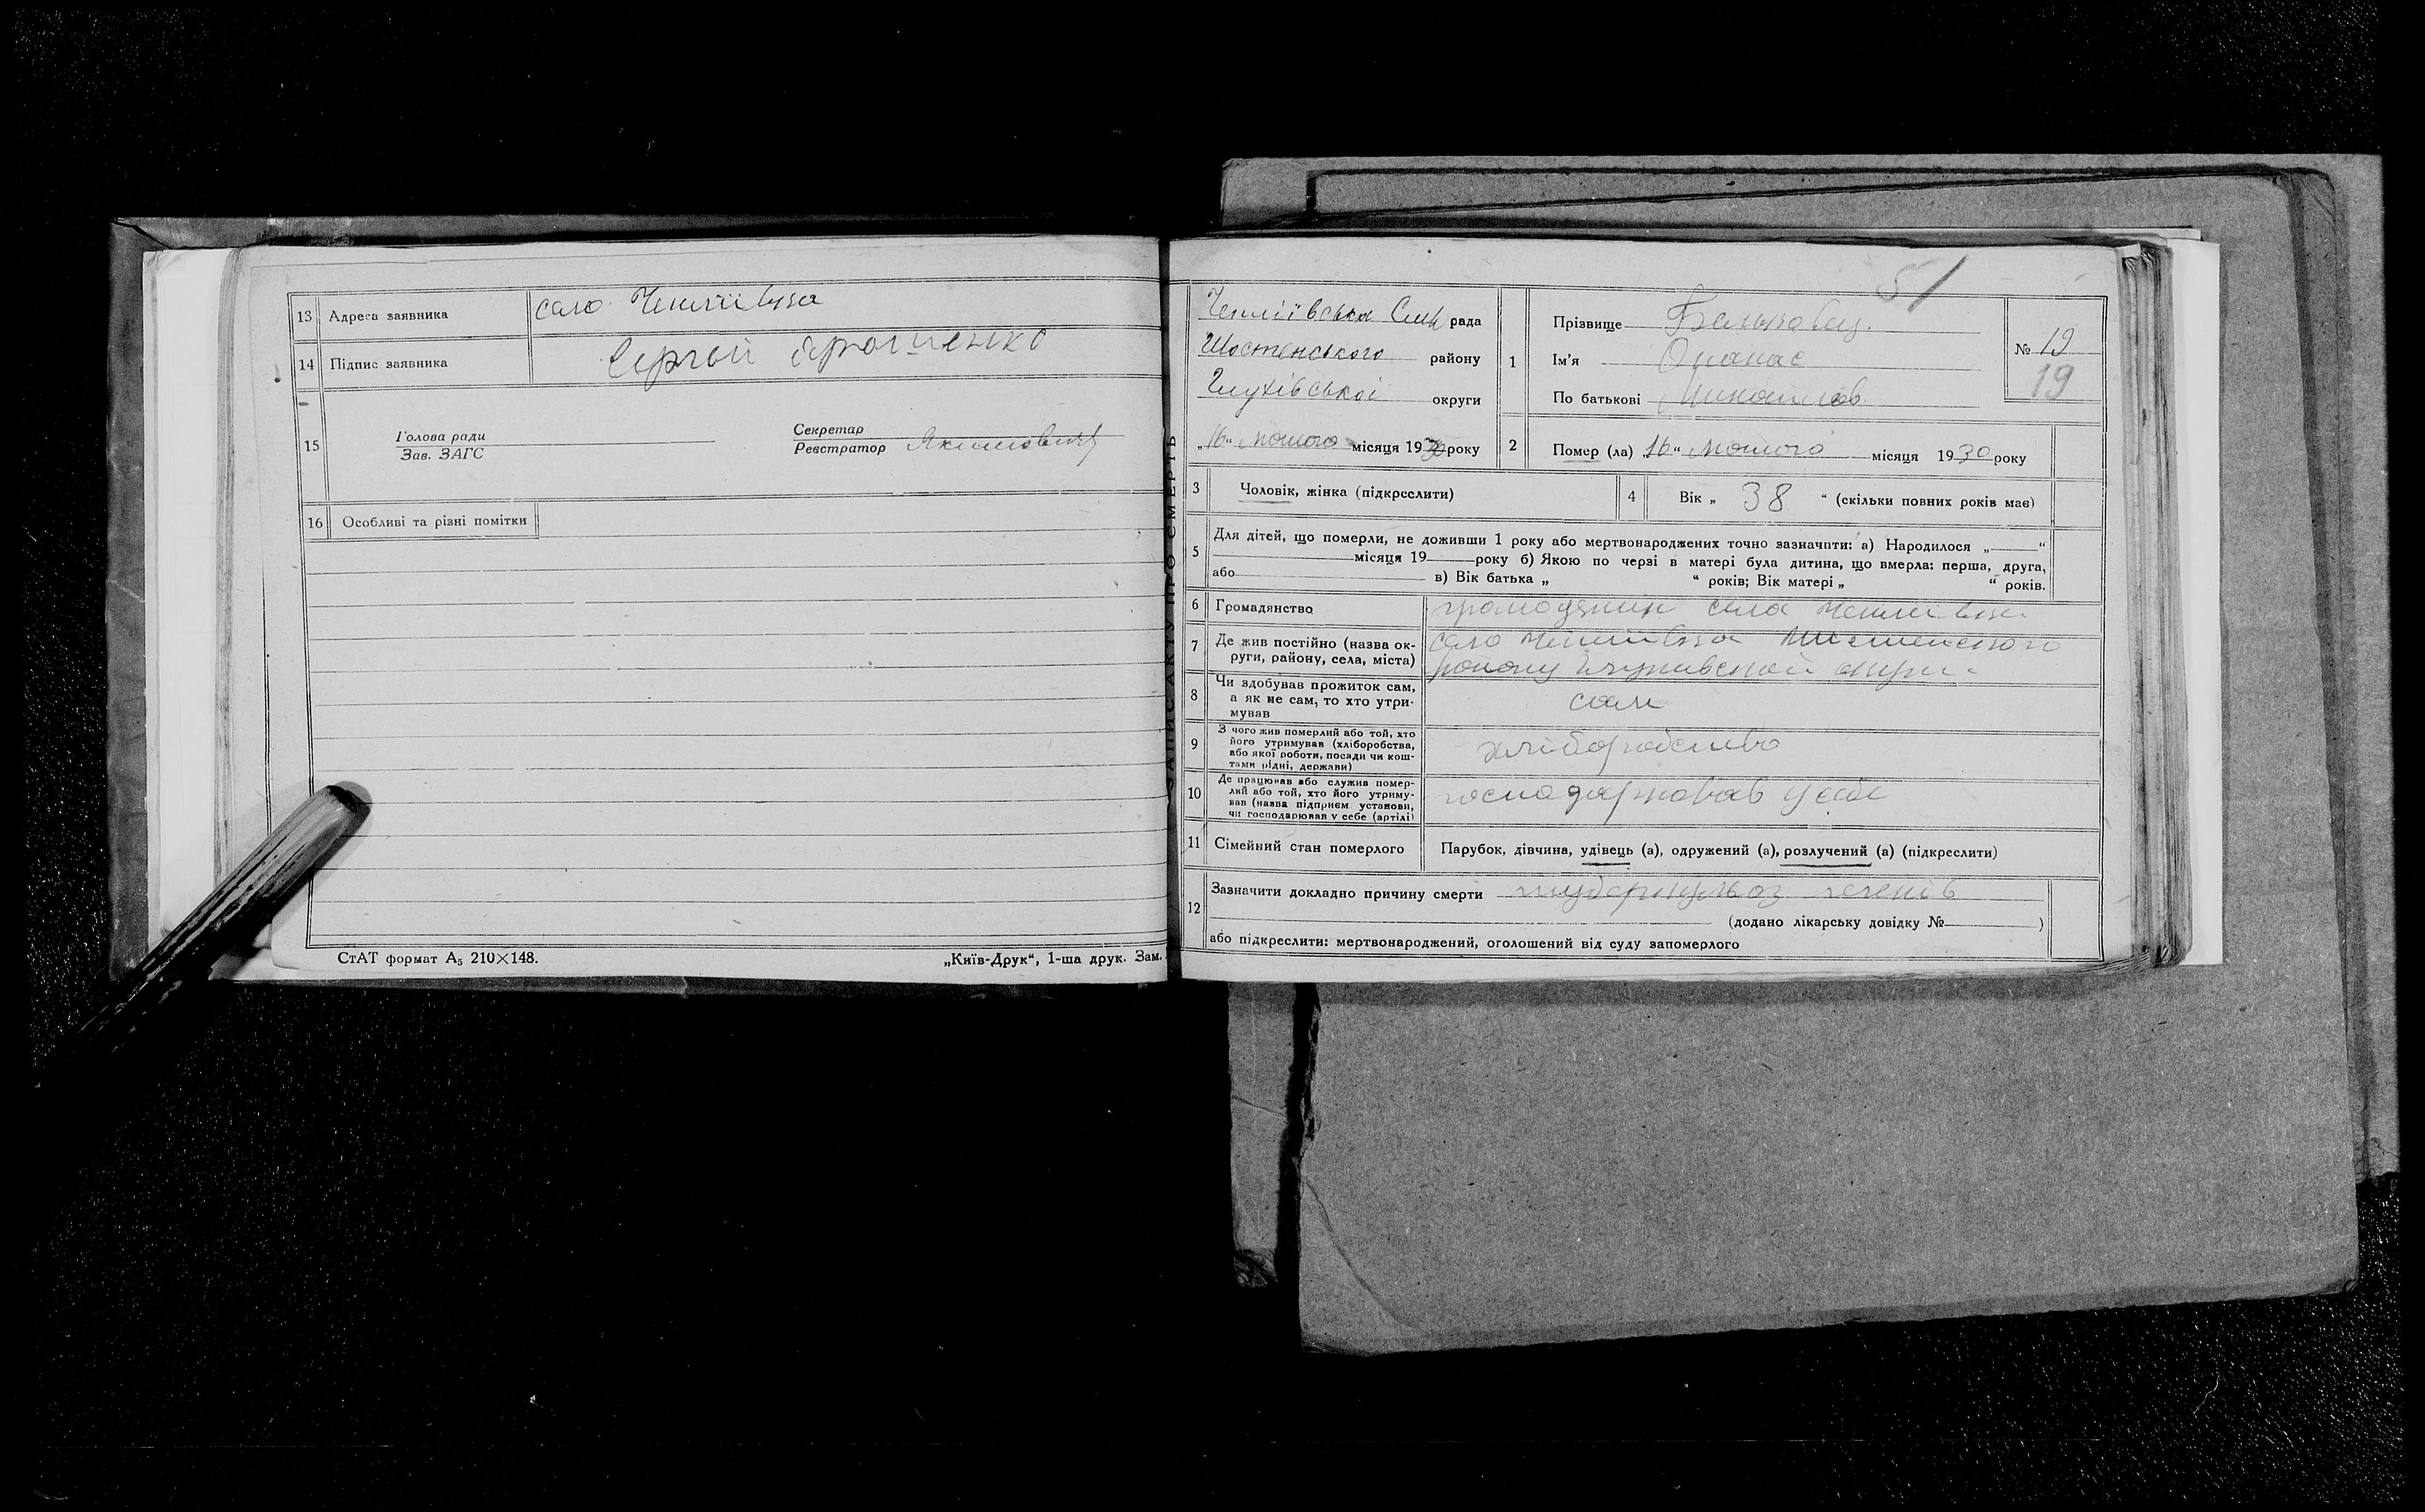 13 Адреса заявника село
14 Підпис заявника Сергій Ярошенко
15 Голова ради
Зав. ЗАГС
Секретар
Реєстратор Якимович
16 Особливі та різні помітки
СтАТ формат А₅ 210×148.
„Київ-Друк“, 1-ша друк. Зам.
ЗАПИС АКТУ ПРО СМЕРТЬ
51
рада
Шостенського району
Глухівської округи
„16“ лютого місяця 1930 року
1 Прізвище
Ім'я Опанас
По батькові
№ 19
19
2 Помер (ла) „16“ лютого місяця 1930 року
3 Чоловік, жінка (підкреслити)
4 Вік „ 38 “ (скільки повних років має)
5 Для дітей, що померли, не доживши 1 року або мертвонароджених точно зазначити: а) Народилося „ “
місяця 19 року б) Якою по черзі в матері була дитина, що вмерла: перша, друга,
або в) Вік батька „ “ років; Вік матері „ “ років.
6 Громадянство громадянин села
7 Де жив постійно (назва ок-
руги, району, села, міста)
село
району
8 Чи здобував прожиток сам,
а як не сам, то хто утри-
мував
сам
9 З чого жив померлий або той, хто
його утримував (хліборобства,
або якої роботи, посади чи кош-
тами рідні, держави)
хліборобство
10 Де працював або служив помер-
лий або той, хто його утриму-
вав (назва підприєм установи,
чи господарював у себе (артілі)
господарював у себе
11 Сімейний стан померлого Парубок, дівчина, удівець (а), одружений (а), розлучений (а) (підкреслити)
12 Зазначити докладно причину смерти туберкульоз легенів
(додано лікарську довідку № )
або підкреслити: мертвонароджений, оголошений від суду запомерлого